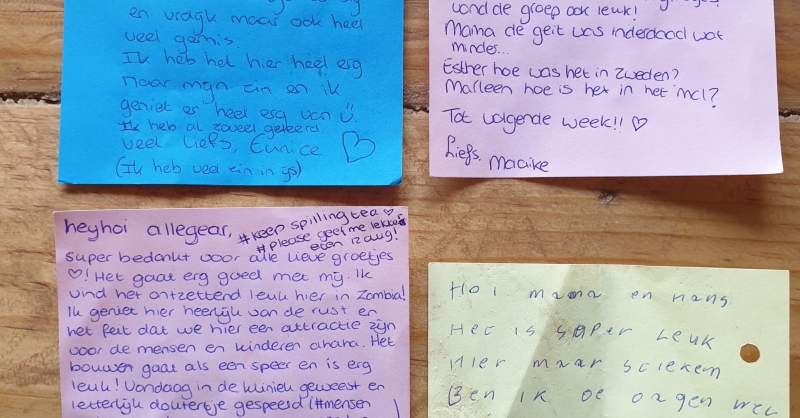 en vrolijk maar ook heel
veel gemis.
Ik heb het hier heel erg
naar mijn zin en ik
geniet er heel erg van Ü.
Ik heb al zoveel geleerd.
Veel liefs, Eunice ♡
(Ik heb veel zin in ijs)
vond die groep ook leuk!
Mama de geit was inderdaad wat
minder...
Esther hoe was het in Zweden?
Marleen hoe is het in het mcl?
Tot volgende week!! ♡
Liefs, Maaike
heyhoi allegear,
#keep spilling tea ♡
#please geef me lekker
eten 12 aug!
Super bedankt voor alle lieve groetjes
♡! Het gaat erg goed met mij. Ik
vind het ontzettend leuk hier in Zambia!
Ik geniet hier heerlijk van de rust en
het feit dat we hier een attractie zijn
voor de mensen en kinderen ahaha. Het
bouwen gaat als een speer en is erg
leuk! Vandaag in de kliniek geweest en
letterlijk doktertje gespeeld (#mensen
Hoi mama en Hans
Het is super leuk
Hier maar
Ben ik de